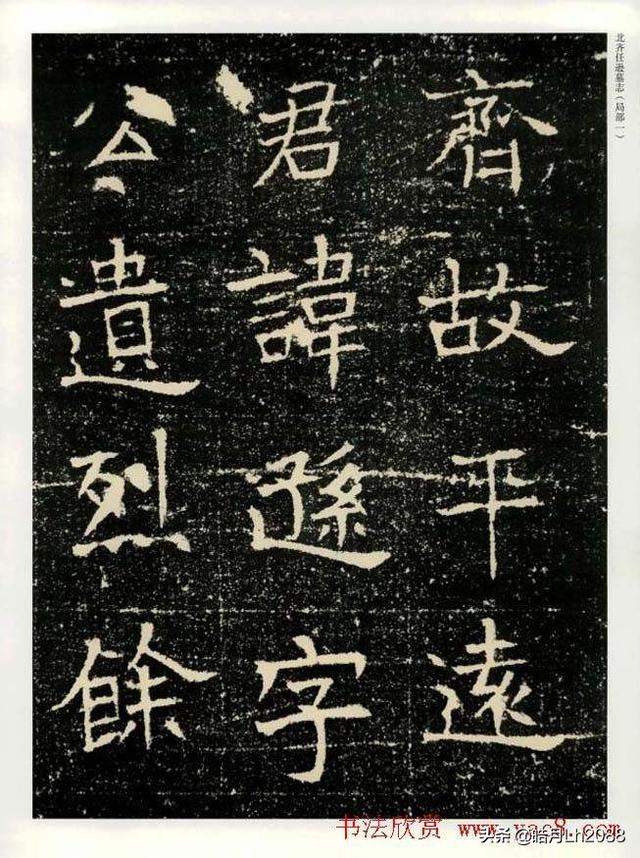 北齐任逊墓志（局部一）
齊故平遠
君諱遜字
公遺烈餘
书法欣赏 www.yac8.com
头条 @皓月Lh2088